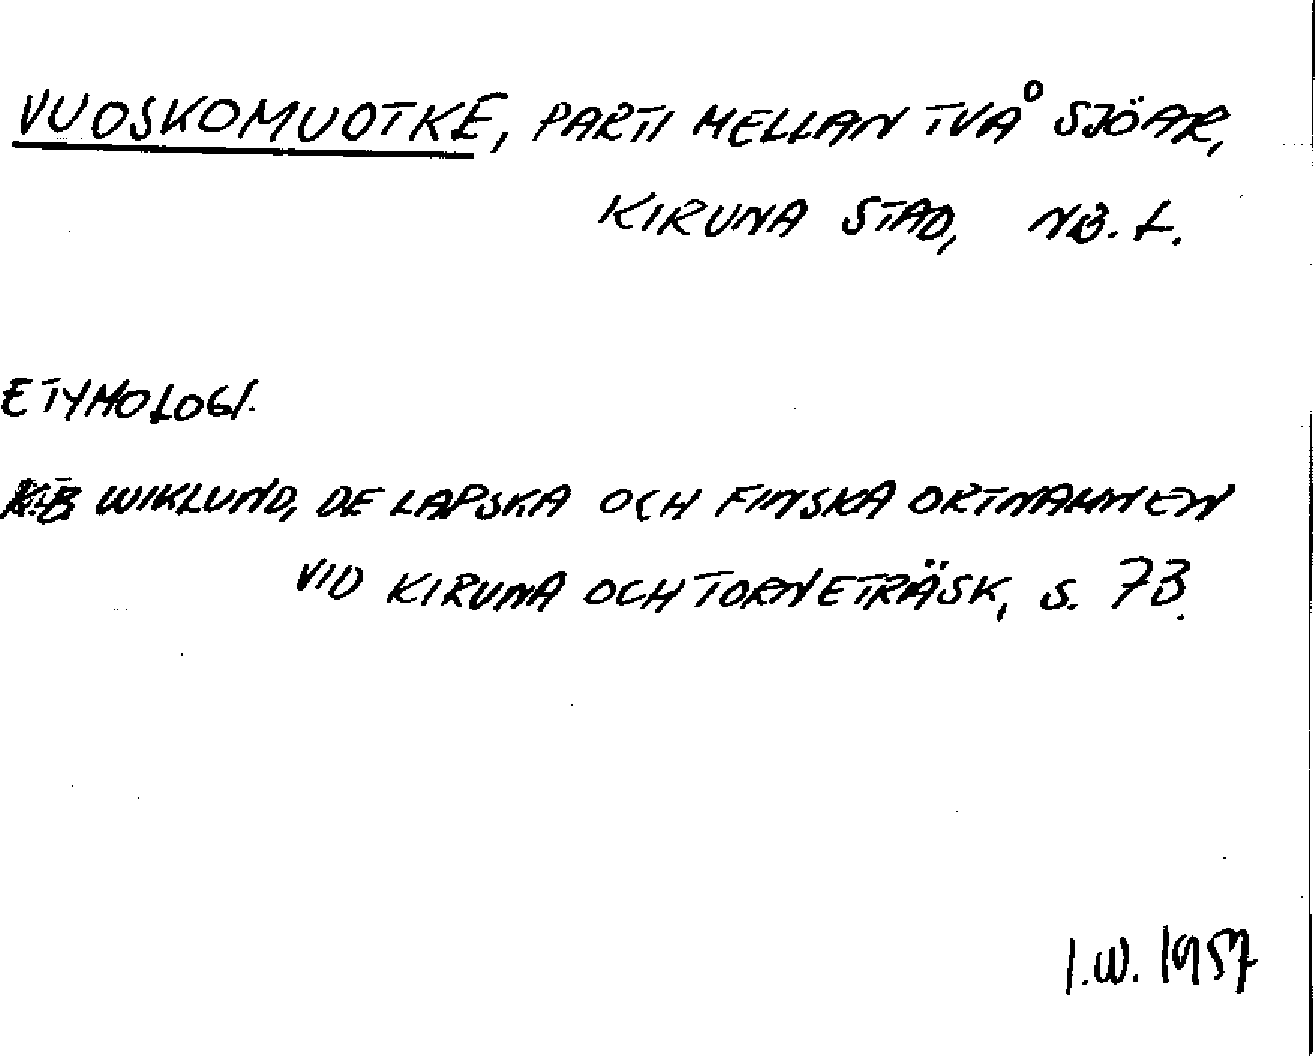 VUOSKOMUOTKE, PARTI MELLAN TVÅ SJÖAR,
KIRUNA STAD, NB. L.
ETYMOLOGI.
K.B WIKLUND, DE LAPSKA OCH FINSKA ORTNAMNEN
VID KIRUNA OCH TORNETRÄSK, S. 73.
I.W. 1957